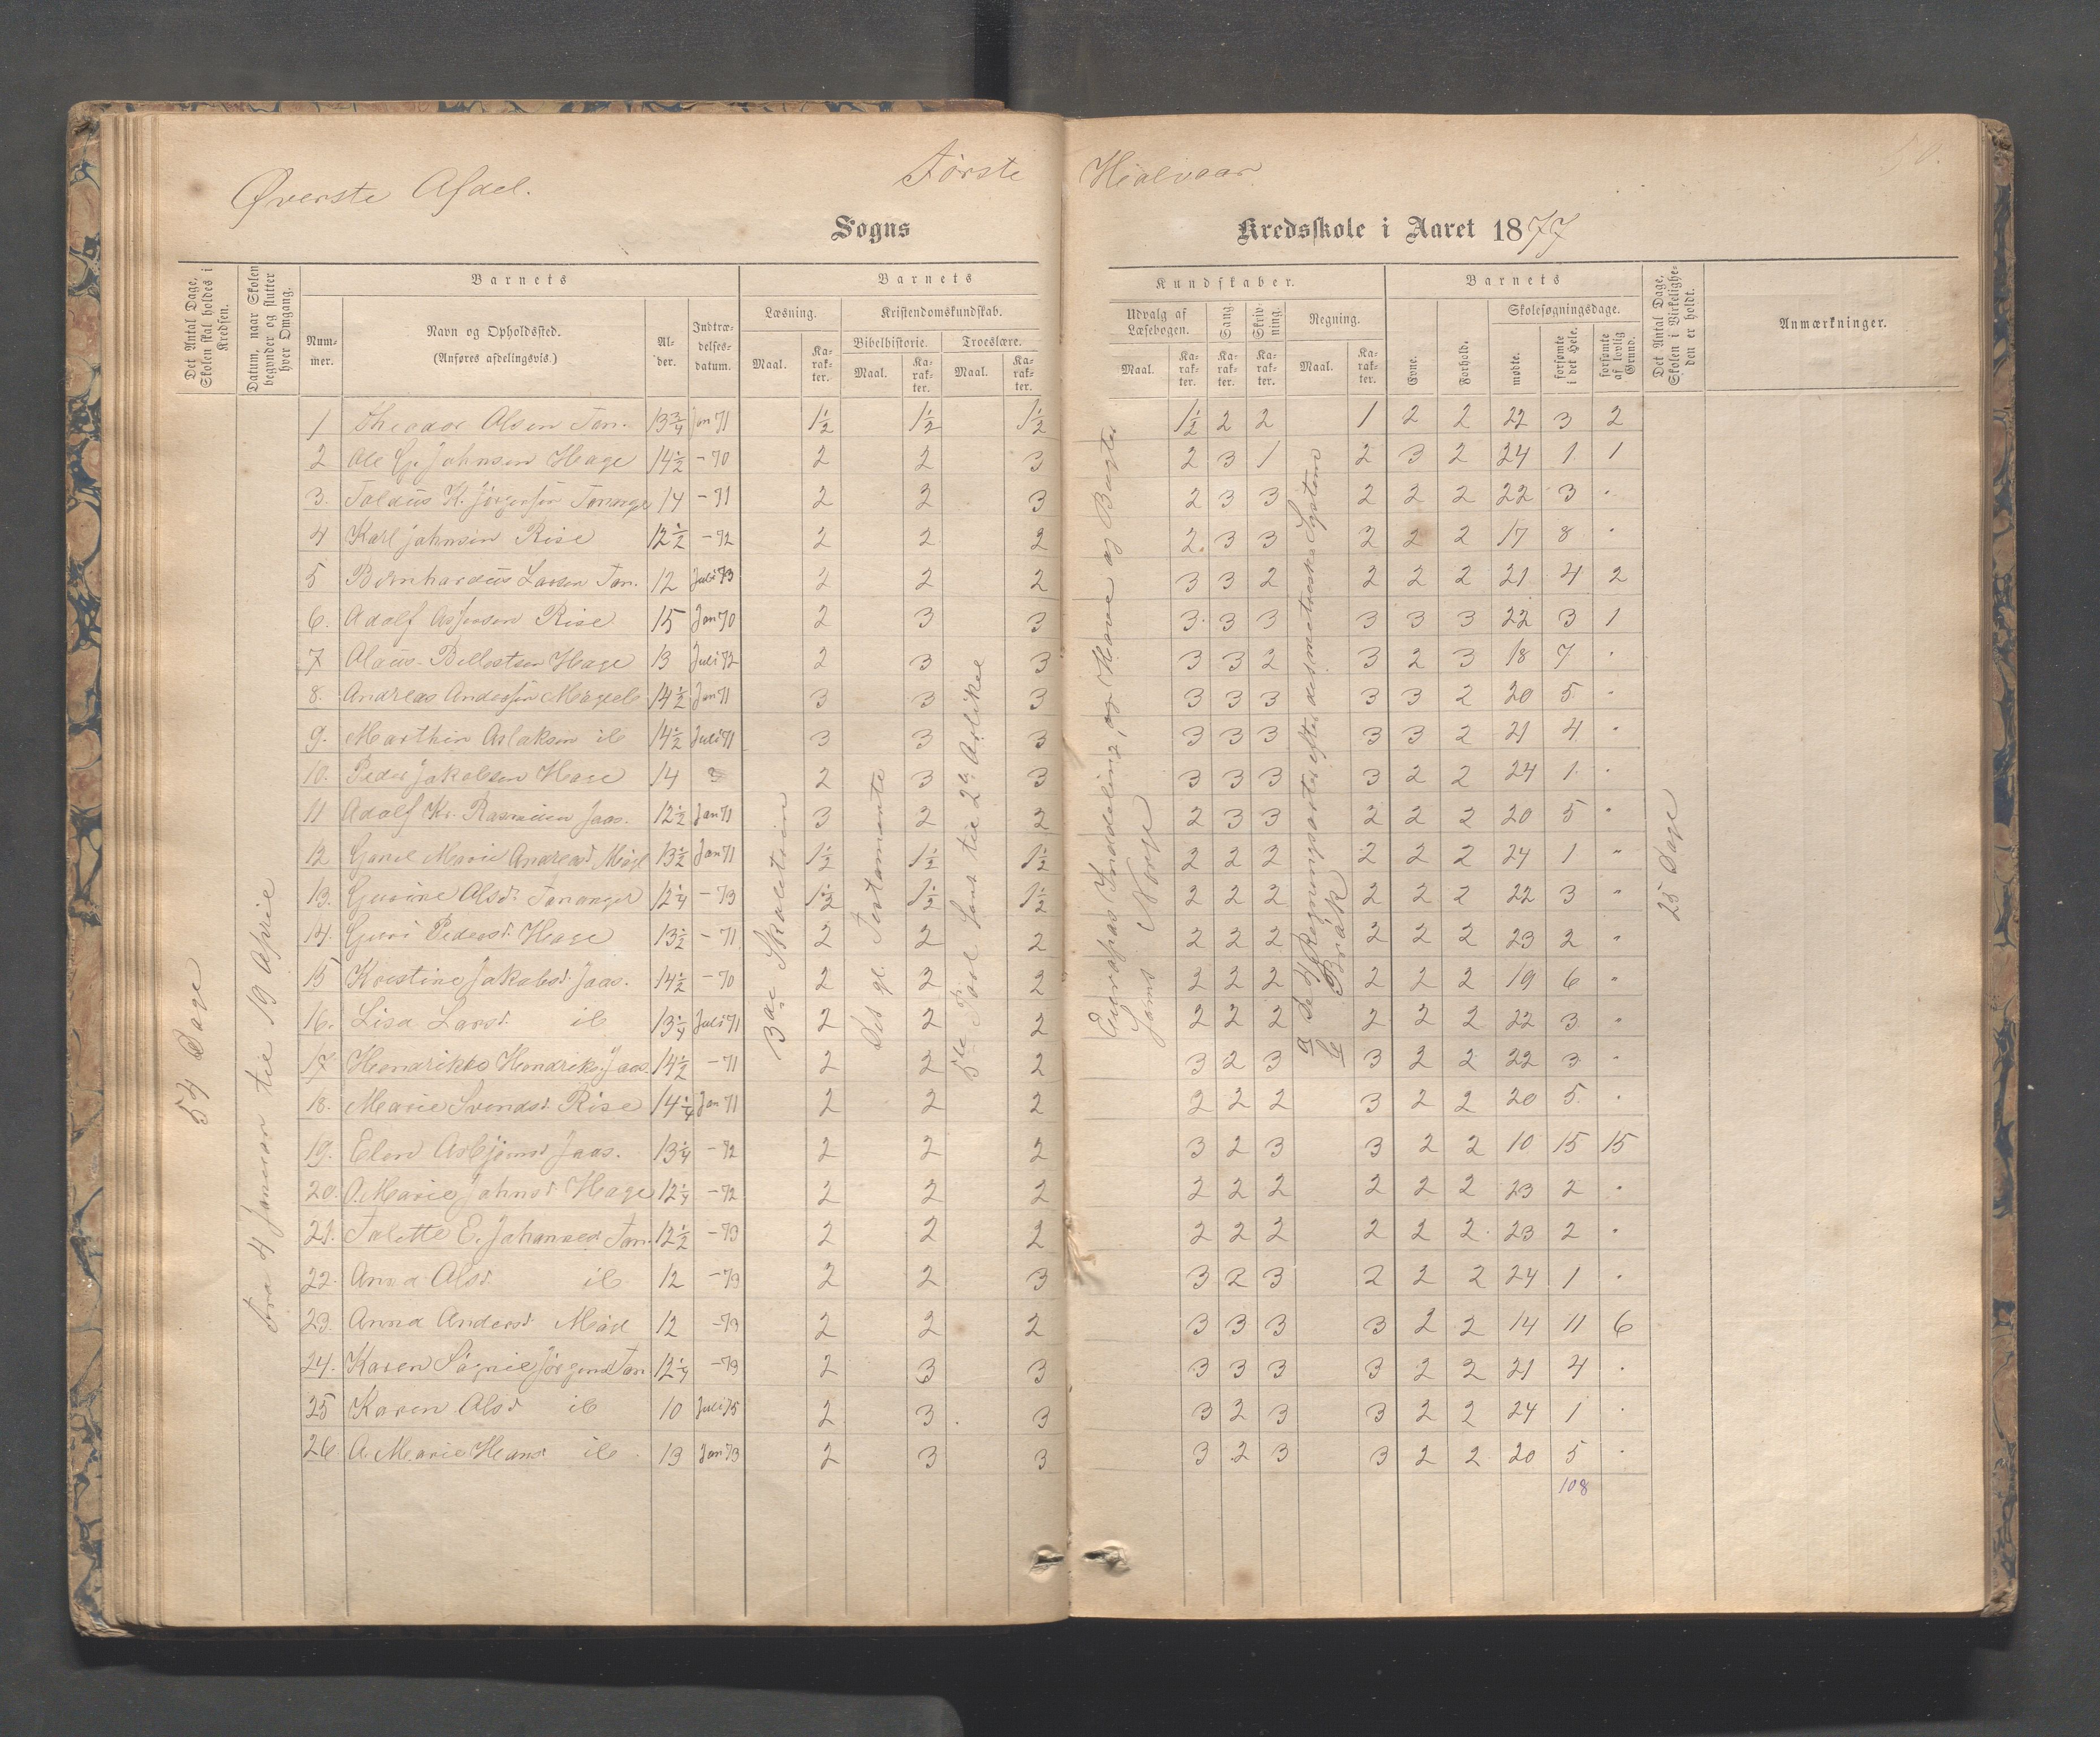 Øverste Afdel. Første Hialvaar
Sogns Kredsskole i Aaret 1877
Det Antal Dage, Skolen skal holdes i Kredsen.
Datum, naar Skolen begynder og slutter hver Omgang.
Barnets
Nummer.
Navn og Opholdssted.
(Anføres afdelingsvis.)
Alder.
Indtrædelsesdatum.
Barnets Kundskaber.
Læsning.
Maal.
Karakter.
Kristendomskundskab.
Bibelhistorie. Troeslære.
Maal. Karakter. Maal. Karakter.
Udvalg af Læsebogen.
Maal. Karakter.
Sang
Karakter.
Skrivning.
Karakter.
Regning.
Maal. Karakter.
Barnets
Evne.
Forhold.
Skolesøgningsdage.
mødte.
forsømte i det Hele.
forsømte af lovlig Grund.
Det Antal Dage, Skolen i Virkeligheden er holdt.
Anmærkninger.
54 Dage
fra 4 Januar til 19 April
Det gl. Testamente
5te Part samt til 2den Artikel
Europas Inddeling, og Have og Bugter
samt Norge
Regningsarter efter det metriske System
Brøk
25 Dage
1 Theodor Olsen Tan. 13 3/4 Jan 71 1½ 1½ 1½ 1½ 2 2 1 2 2 22 3 2
2 Ole G. Johnsen Hage 14½ -70 2 2 3 2 3 1 2 3 2 24 1 1
3. K. Jørgensen Tananger 14 -71 2 2 3 2 3 3 2 2 2 22 3 .
4 Karl Johnsen Risе 12½ -72 2 2 2 2. 3 3 2 2 2 17 8 .
5 Bernhardus Larsen Tan. 12 Juli 73 2 2 2 3 3 2 2 2 2 21 4 2
6. Adolf Rise 15 Jan 70 2 3 3 3. 3 3 3 3 3 22 3 1
7 Hage 13 Juli 72 2 3 3 3 3 2 3 2 3 18 7 .
8. Andreas Andersen 14½ Jan 71 3 3 3 3 3 3 3 3 2 20 5 .
9. Marthin Aslaksen ib 14½ Juli 71 3 3 3 3 3 3 3 3 2 21 4 .
10. Peder Jakobsen Hage 14 2 3 3 3 3 3 3 2 2 24 1 .
11 Adolf Kr. Rasmusen Jaas. 12½ Jan 71 3 2 2 2 3 3 2 2 2 20 5 "
12 Marie Andreasd. 13½ Jan 71 1½ 1½ 1½ 2 2 2 2 2 2 24 1 "
13. Gurine Olsd. Tananger 12¼ -73 1½ 1½ 1½ 2 2 2 2 2 2 22 3 "
14. Guri Pedersd. Hage 13½ -71 2 2 2 2 2 2 2 2 2 23 2 "
15 Kristine Jakobsd. Jaas. 14½ -70 2 2 2 2 2 2 2 2 2 19 6 "
16. Lisa Larsd. ib 13¼ Juli 71 2 2 2 2 2 2 2 2 2 22 3 "
17 Jaas. 14½ -71 2 2 2 3 2 3 3 2 2 22 3 "
18. Marie Svendsd. Rise 14¼ Jan 71 2 2 2 2 2 2 3 2 2 20 5 .
19. Elen Asbjørnsd. Jaas. 13¼ -72 2 2 2 3 2 3 3 2 2 10 15 15
20. O. Marie Johnsd. Hage 12¼ -72 2 2 2 2 2 2 2 2 2 23 2 .
21. Talette E. Johannesd. Tan. 12½ -73 2 2 2 2 2 2 2 2 2 23 2 .
22. Anna Olsd. ib 12 -73 2 2 3 3 2 3 2 2 2 24 1 .
23. Anna Andersd. 12 -73 2 2 2 3 3 3 3 2 2 14 11 6
24. Karen Jørgensd. Tan 12¼ -73 2 3 3 3 3 3 3 2 2 21 4 .
25 Karen Olsd. ib 10 Juli 75 2 3 3 3 2 3 3 2 2 24 1 .
26 A. Marie Hansd. ib 13 Jan 73 2 3 3 3 2 3 3 2 2 20 5 .
108